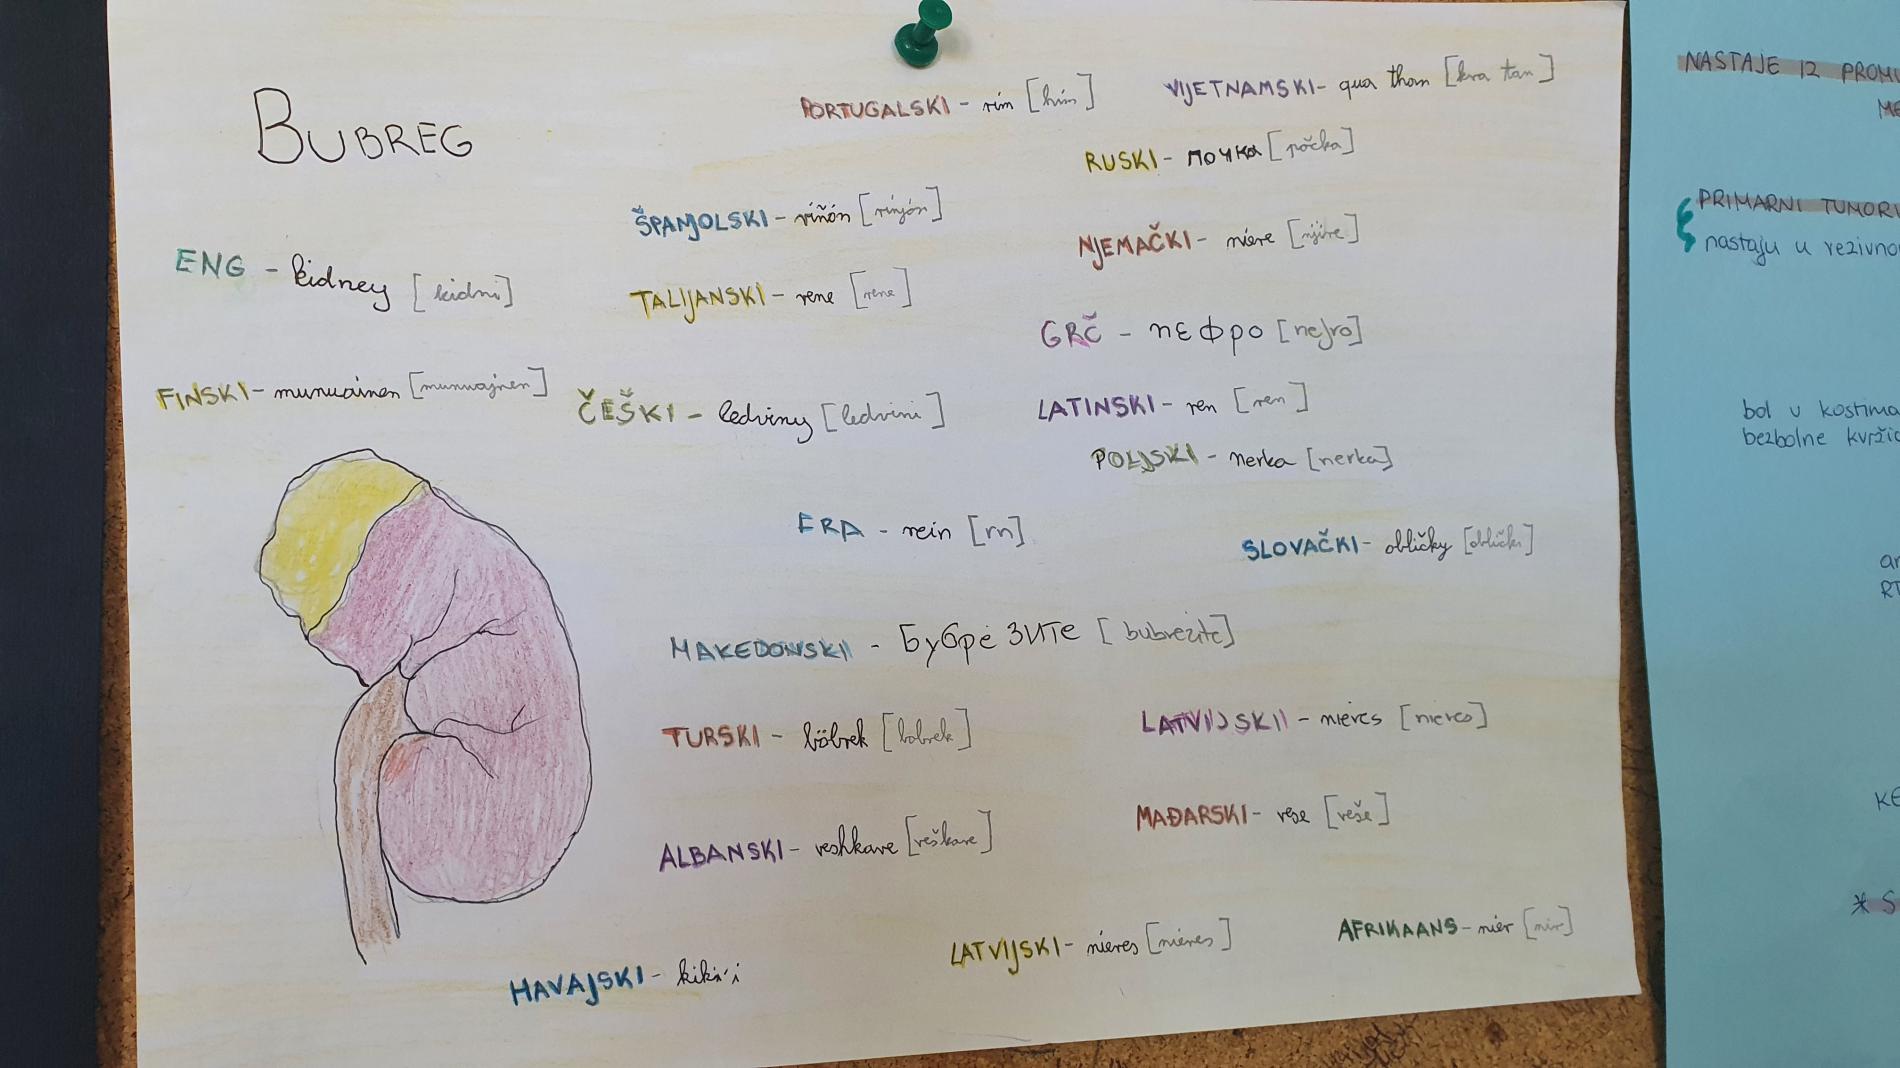 BUBREG
PORTUGALSKI - rim [him]
VIJETNAMSKI - qua than [kva tan]
RUSKI - почка [počka]
ŠPANJOLSKI - riñón [rinjón]
NJEMAČKI - niere [njire]
ENG - kidney [kidni]
TALIJANSKI - rene [rene]
GRČ - πεφρο [nefro]
FINSKI - munuainen [munuajnen]
ČEŠKI - ledviny [ledvini]
LATINSKI - ren [ren]
POLJSKI - nerka [nerka]
FRA - rein [rn]
SLOVAČKI - obličky [oblički]
MAKEDONSKI - Бубре ЗИТЕ [bubrezite]
TURSKI - böbrek [bobrek]
LATVIJSKI - nieres [nieres]
ALBANSKI - veshkave [veškave]
MAĐARSKI - vese [veše]
LATVIJSKI - nieres [nieres]
AFRIKAANS - nier [nir]
HAVAJSKI -
NASTAJE 12 PROMI
ME
PRIMARNI TUMORI
nastaju u rezivno
bol u kostima
bezbolne kvržic
an
RT
KE
* S